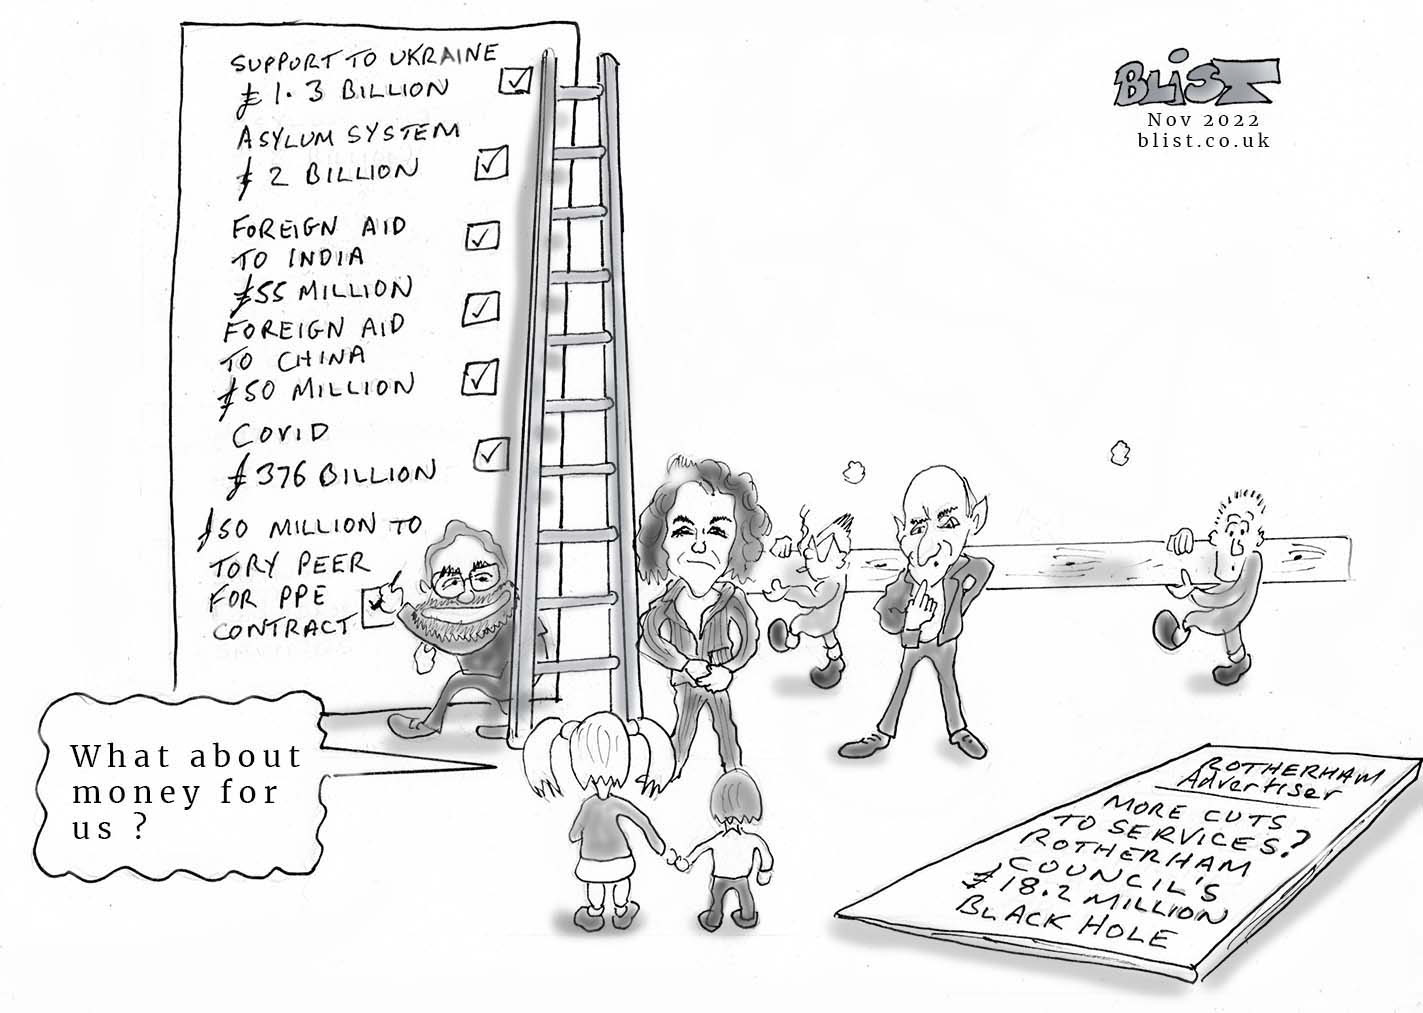 SUPPORT TO UKRAINE
£1.3 BILLION
ASYLUM SYSTEM
£2 BILLION
FOREIGN AID
TO INDIA
£55 MILLION
FOREIGN AID
TO CHINA
£50 MILLION
COVID
£376 BILLION
£50 MILLION TO
TORY PEER
FOR PPE
CONTRACT
BLiST
Nov 2022
blist.co.uk
What about
money for
us ?
ROTHERHAM
Advertiser
MORE CUTS
TO SERVICES?
ROTHERHAM
COUNCIL'S
£18.2 MILLION
BLACK HOLE